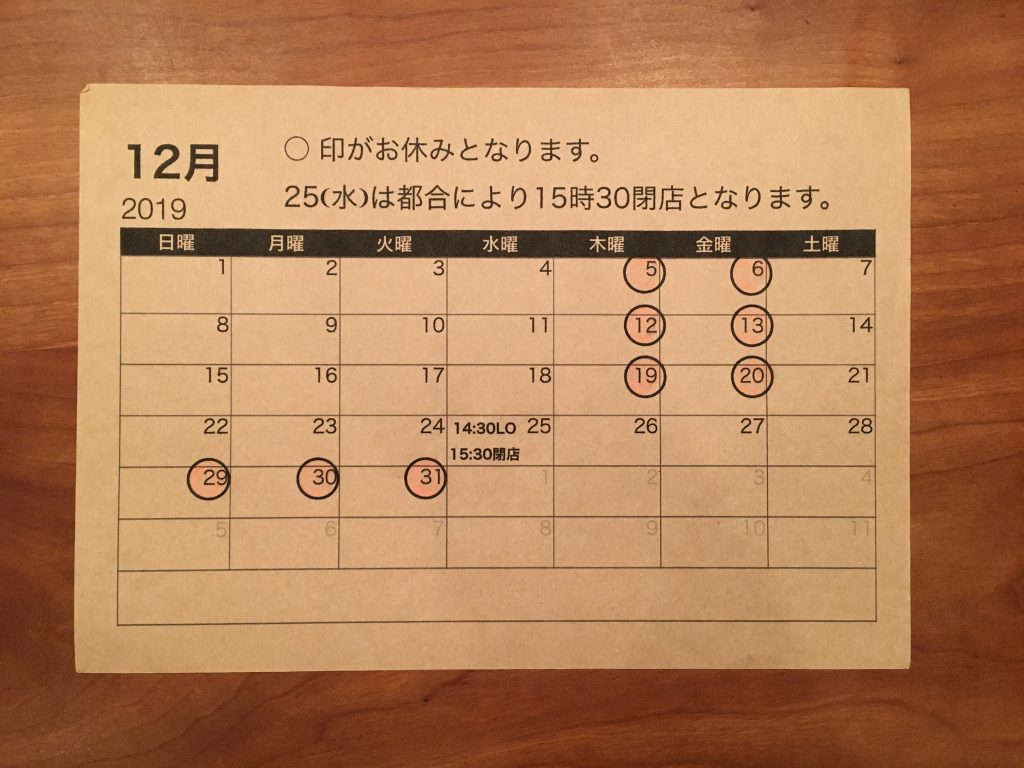 12月
2019
○ 印がお休みとなります。
25(水)は都合により15時30閉店となります。
日曜 月曜 火曜 水曜 木曜 金曜 土曜
1 2 3 4 5 6 7
8 9 10 11 12 13 14
15 16 17 18 19 20 21
22 23 24 14:30LO 25 26 27 28
15:30閉店
29 30 31 1 2 3 4
5 6 7 8 9 10 11